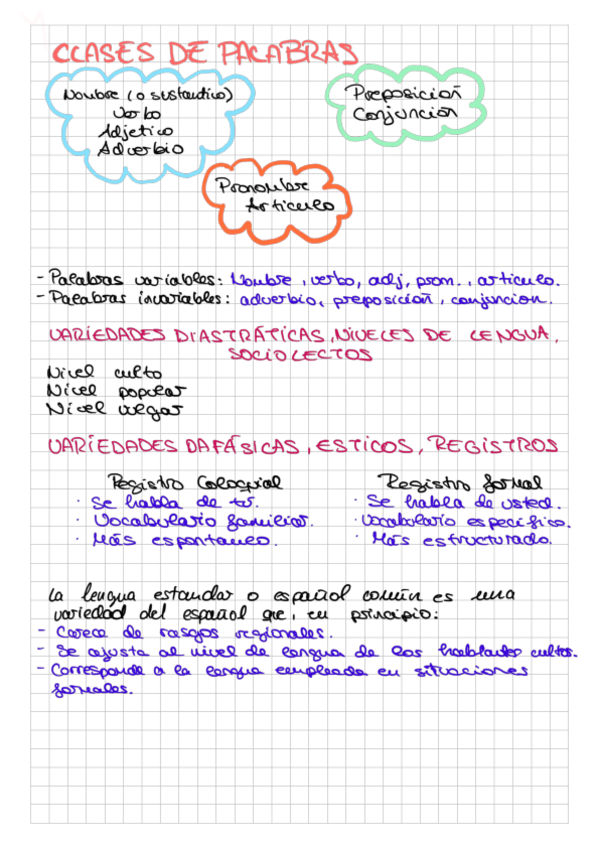 CLASES DE PALABRAS
Nombre (o sustantivo)
Verbo
Adjetico
Adverbio
Preposicioñ
Conjunción
Pronombre
Articulo
- Palabras variables: Nombre, verbo, adj, prom., articulo.
- Palabras invariables: adverbio, preposicioñ, conjuncion.
VARIEDADES DIASTRÁTICAS, NIVELES DE LENGUA,
SOCIOLECTOS
Nivel culto
Nivel popular
Nivel vulgar
VARIEDADES DAFÁSICAS, ESTICOS, REGISTROS
Registro Coloquial
· Se habla de tú.
· Vocabulario familiar.
· Más espontaneo.
Registro formal
· Se habla de usted.
· Vocabulario específico.
· Más estructurado.
La lengua estandar o español común es una
variedad del español que, en principio:
- Carece de rasgos regionales.
- Se ajusta al nivel de lengua de los hablantes cultos.
- Corresponde a la lengua empleada en situaciones
formales.